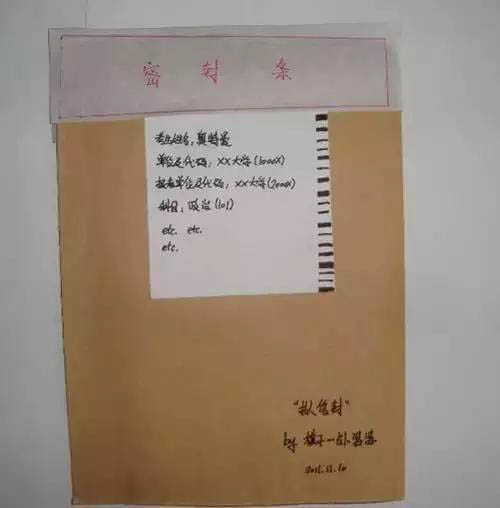 密封条
考生姓名：奥特曼
单位及代码：XX大学(1000X)
报考单位及代码：XX大学(2000X)
科目：政治(101)
etc. etc.
etc.
"拟信封"
by
2011.12.10